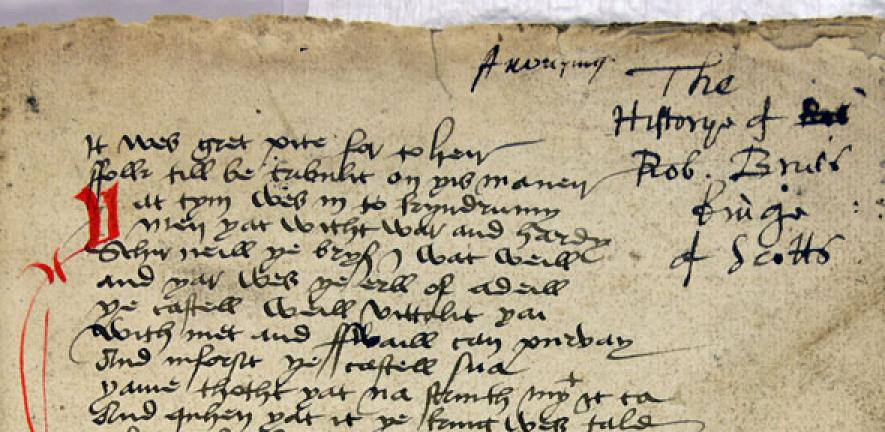 Anonymus
The
Historye of
Rob. Bruis
kinge
of Scotts
It wes gret pite for to heir
ffolk till be trublit on yis maner
At tym wes in to kyndrumy
men yat witht war and hardy
Schir neill ye bryß I wat weill
and yar wes ye erll of adeill
ye castell weill vittalit yai
with met and ffwaill can purvay
And inforsit ye castell sua
yame thotht yat na strinth myt it ta
And quhen yat it ye king wes tald